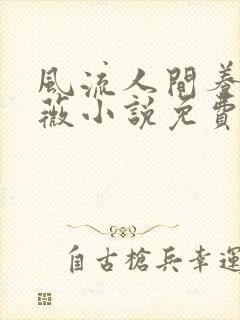 風流人間養
薇小說免費
自古槍兵幸運